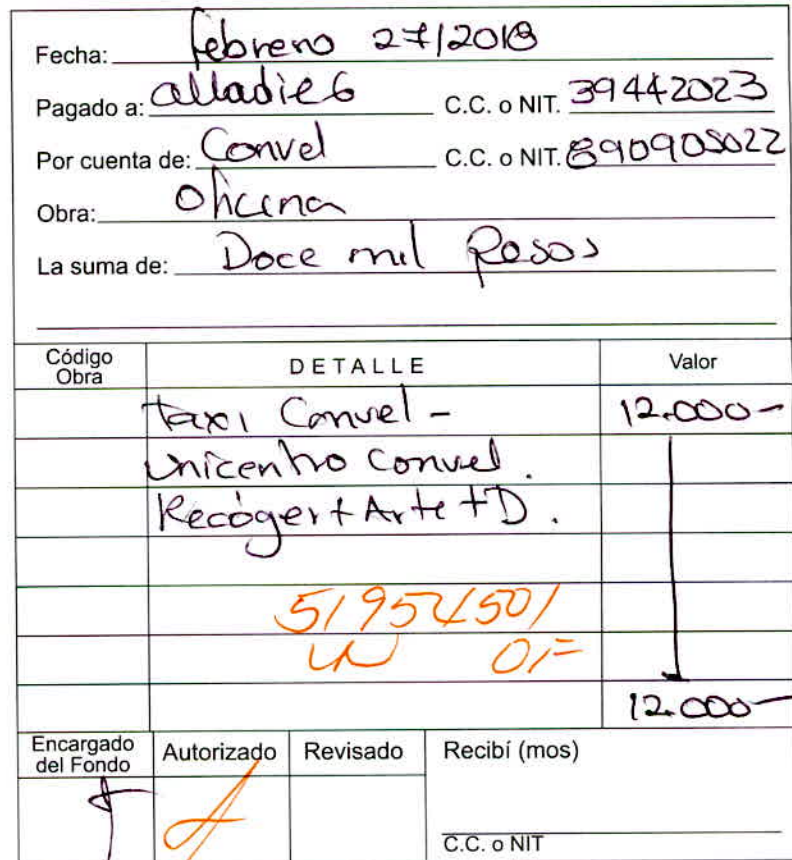 Fecha: febrero 27/2018
Pagado a: alladies C.C. o NIT. 39442023
Por cuenta de: Convel C.C. o NIT. 890905022
Obra: Oficina
La suma de: Doce mil Pesos
Código Obra DETALLE Valor
taxi Convel - 12.000-
unicentro Convel.
Recoger + Arte + D.
51954501
12.000-
Encargado del Fondo Autorizado Revisado Recibí (mos)
C.C. o NIT